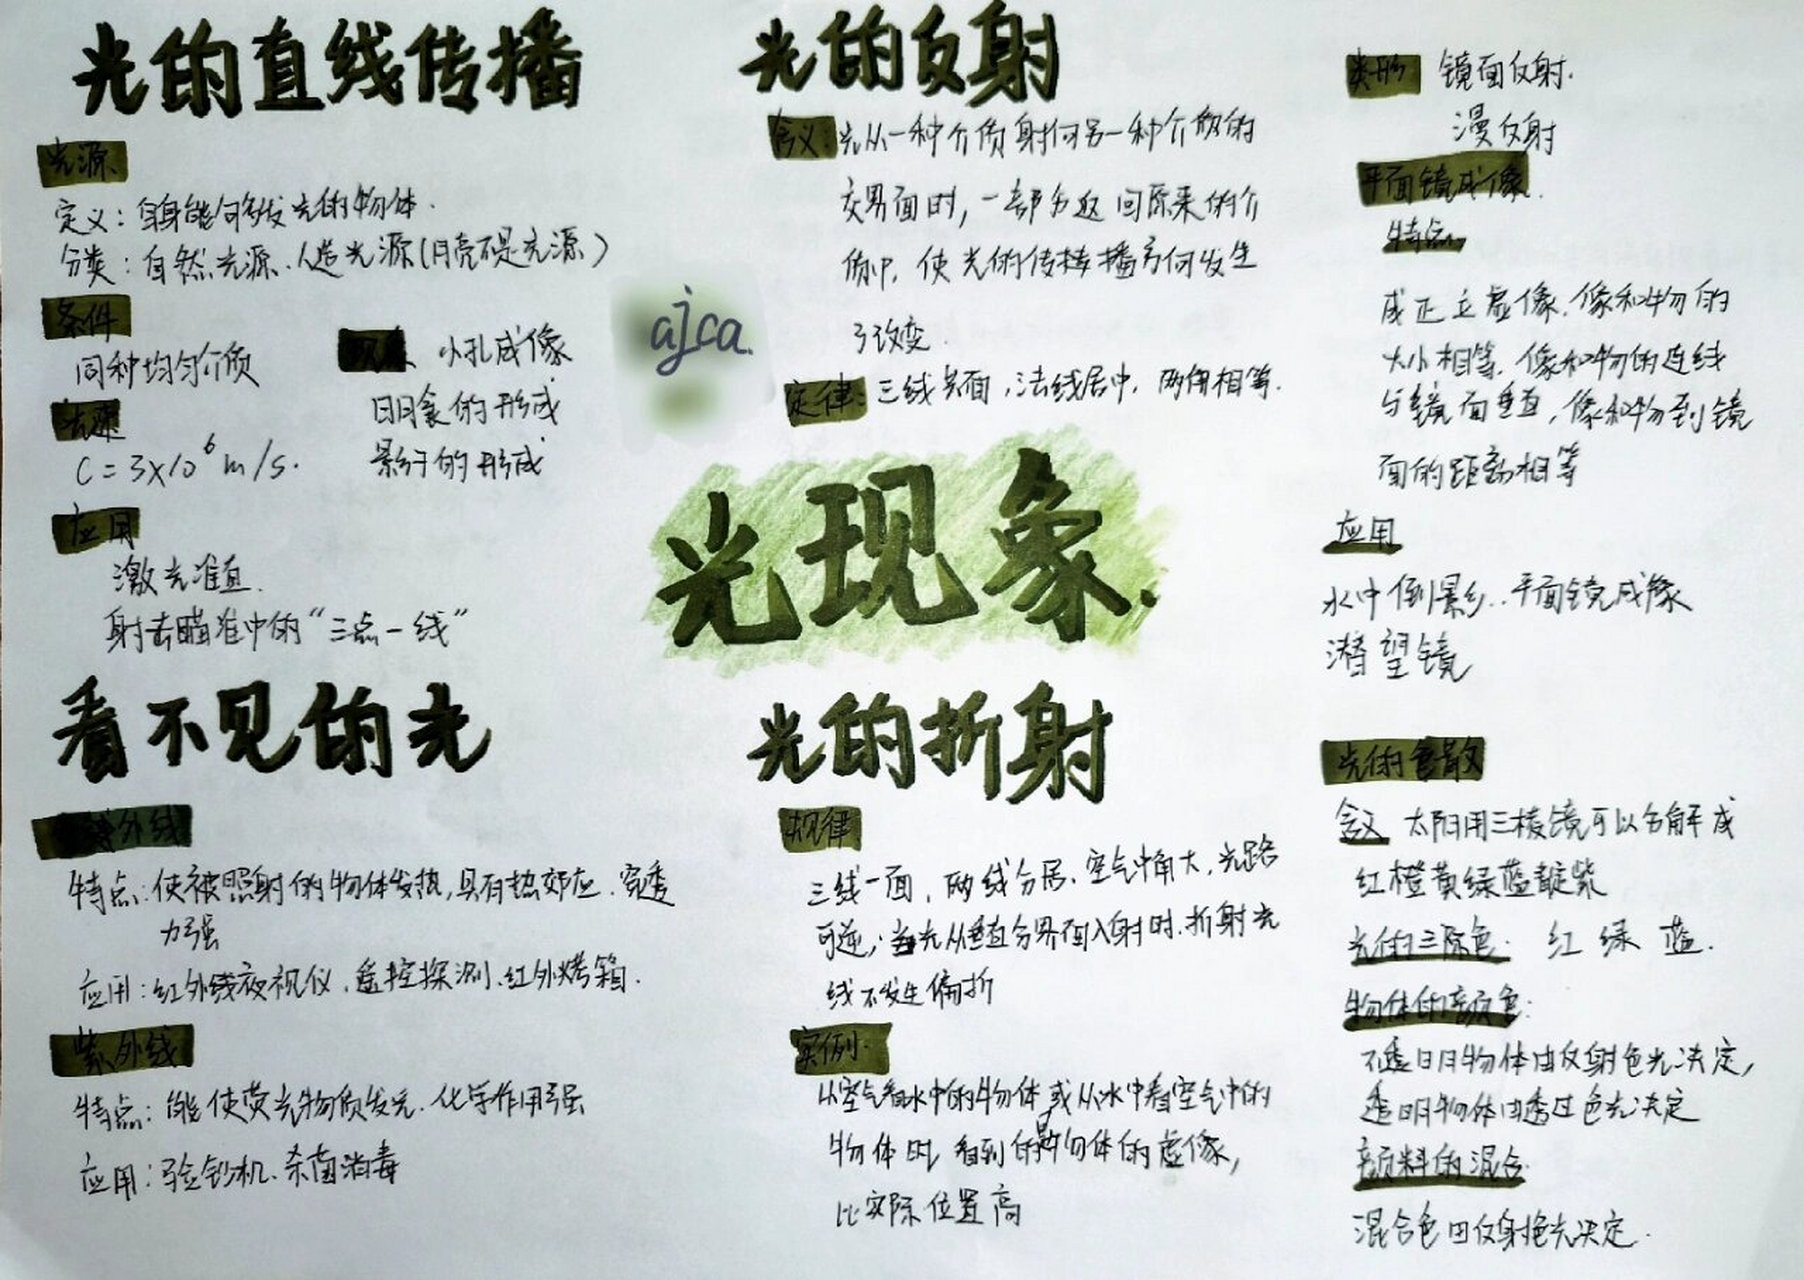 光的直线传播
光源
定义：自身能够发光的物体.
分类：自然光源、人造光源(月亮不是光源)
条件
同种均匀介质
光速
C=3×10⁶m/s.
应用
激光准直.
射击瞄准中的“三点一线”
小孔成像
日月食的形成
影子的形成
ajca.
光的反射
含义:光从一种介质射向另一种介质的
交界面时，一部分返回原来的介
质中，使光的传播方向发生
了改变.
定律：三线共面，法线居中，两角相等.
类形 镜面反射.
漫反射
平面镜成像.
特点
成正立虚像.像和物的
大小相等.像和物的连线
与镜面垂直，像和物到镜
面的距离相等
应用
水中倒影..平面镜成像
潜望镜
光现象.
看不见的光
外线
特点:使被照射的物体发热,具有热效应.穿透
力强
应用:红外线夜视仪、遥控探测、红外烤箱.
紫外线
特点：能使荧光物质发光.化学作用强
应用：验钞机、杀菌消毒
光的折射
规律
三线一面，两线分居、空气中角大，光路
可逆，当光从垂直分界面入射时.折射光
线不发生偏折
实例.
从空气看水中的物体或从水中看空气中的
物体时，看到的是物体的虚像，
比实际位置高
光的色散
含义 太阳用三棱镜可以分解成
红橙黄绿蓝靛紫
光的三原色. 红 绿 蓝.
物体的颜色:
不透明物体由反射色光决定，
透明物体由透过色光决定
颜料的混合
混合色由反射色光决定.